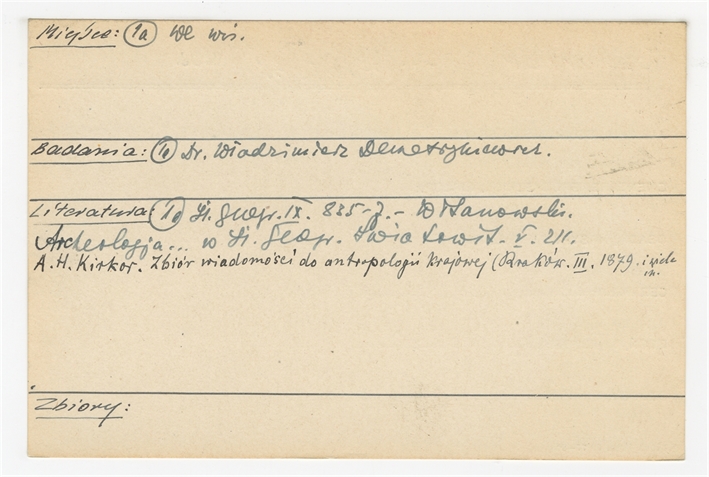 Miejsce: 1a We wsi.
Badania: 1a Dr. Włodzimierz Demetrykiewicz.
Literatura: 1a Sł. geogr. IX. 835-7. - Witanowski.
Archeologja... w Sł. geogr. Światowit. V. 211.
A. H. Kirkor. Zbiór wiadomości do antropologii krajowej (Kraków. III. 1879. i wiele in.
Zbiory: